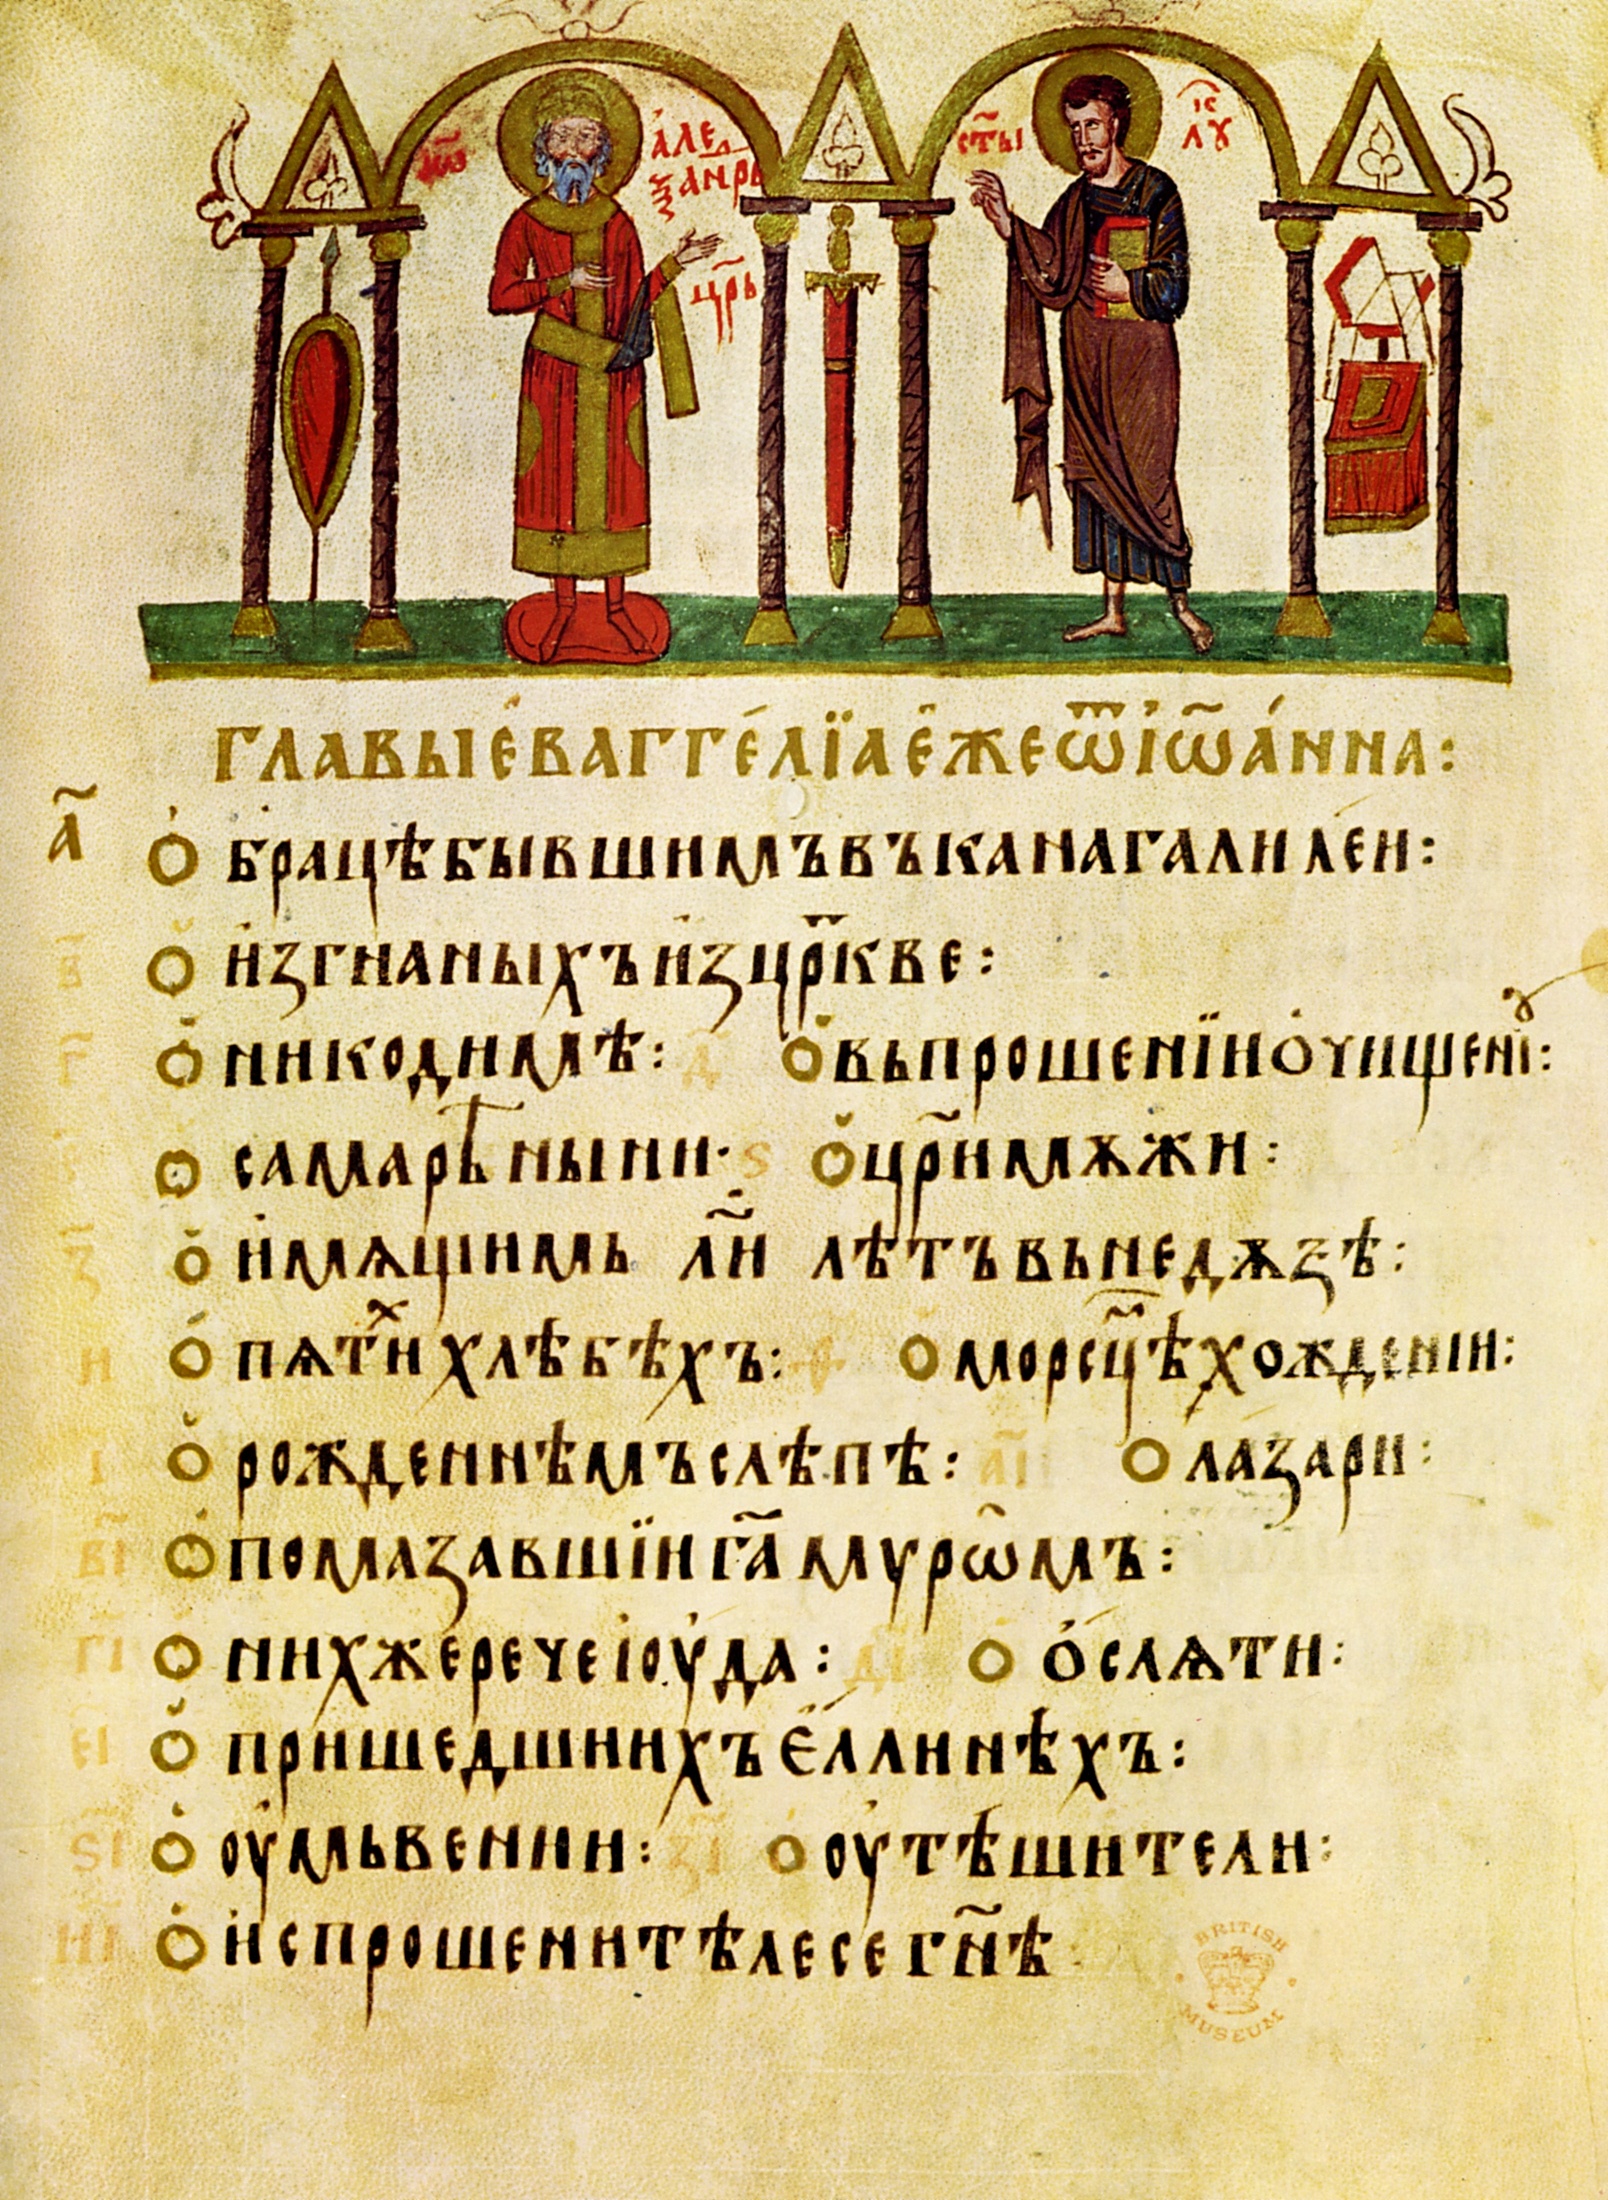 і҃ѡ
але
ѯанⷣрь
цр҃ь
ст҃ы
і҃с
лꙋ
главыеѵаггелїаежеѿіѡанна:
а҃ ꙩбрацѣбывшимъвъканагалилеи:
в҃ о изгнаныхъизцр҃кве:
г҃ о никодимѣ: д҃ о въпрошенїиоучищенїⷪ:
е҃ о самарѣⷩ҇ныни· ѕ о цр҃имѫжи:
з҃ о имѧщимь л҃и лѣтъвьнедѫзѣ:
и о пѧтⷯихлѣбѣхъ: ѳ о морсцⷨѣхождении:
і о рожденнѣмъслѣпѣ: а҃і о лазари:
в҃і о помазавшїиг҃амурѡмъ:
г҃і о нихжеречеіоуда: д҃і о ослѧти:
е҃і о пришедшиихъеллинѣхъ:
ѕ҃і о оумьвении: з҃і о оутѣшители:
и҃і о испрошенителесегн҃ѣ
BRITISH
MUSEUM